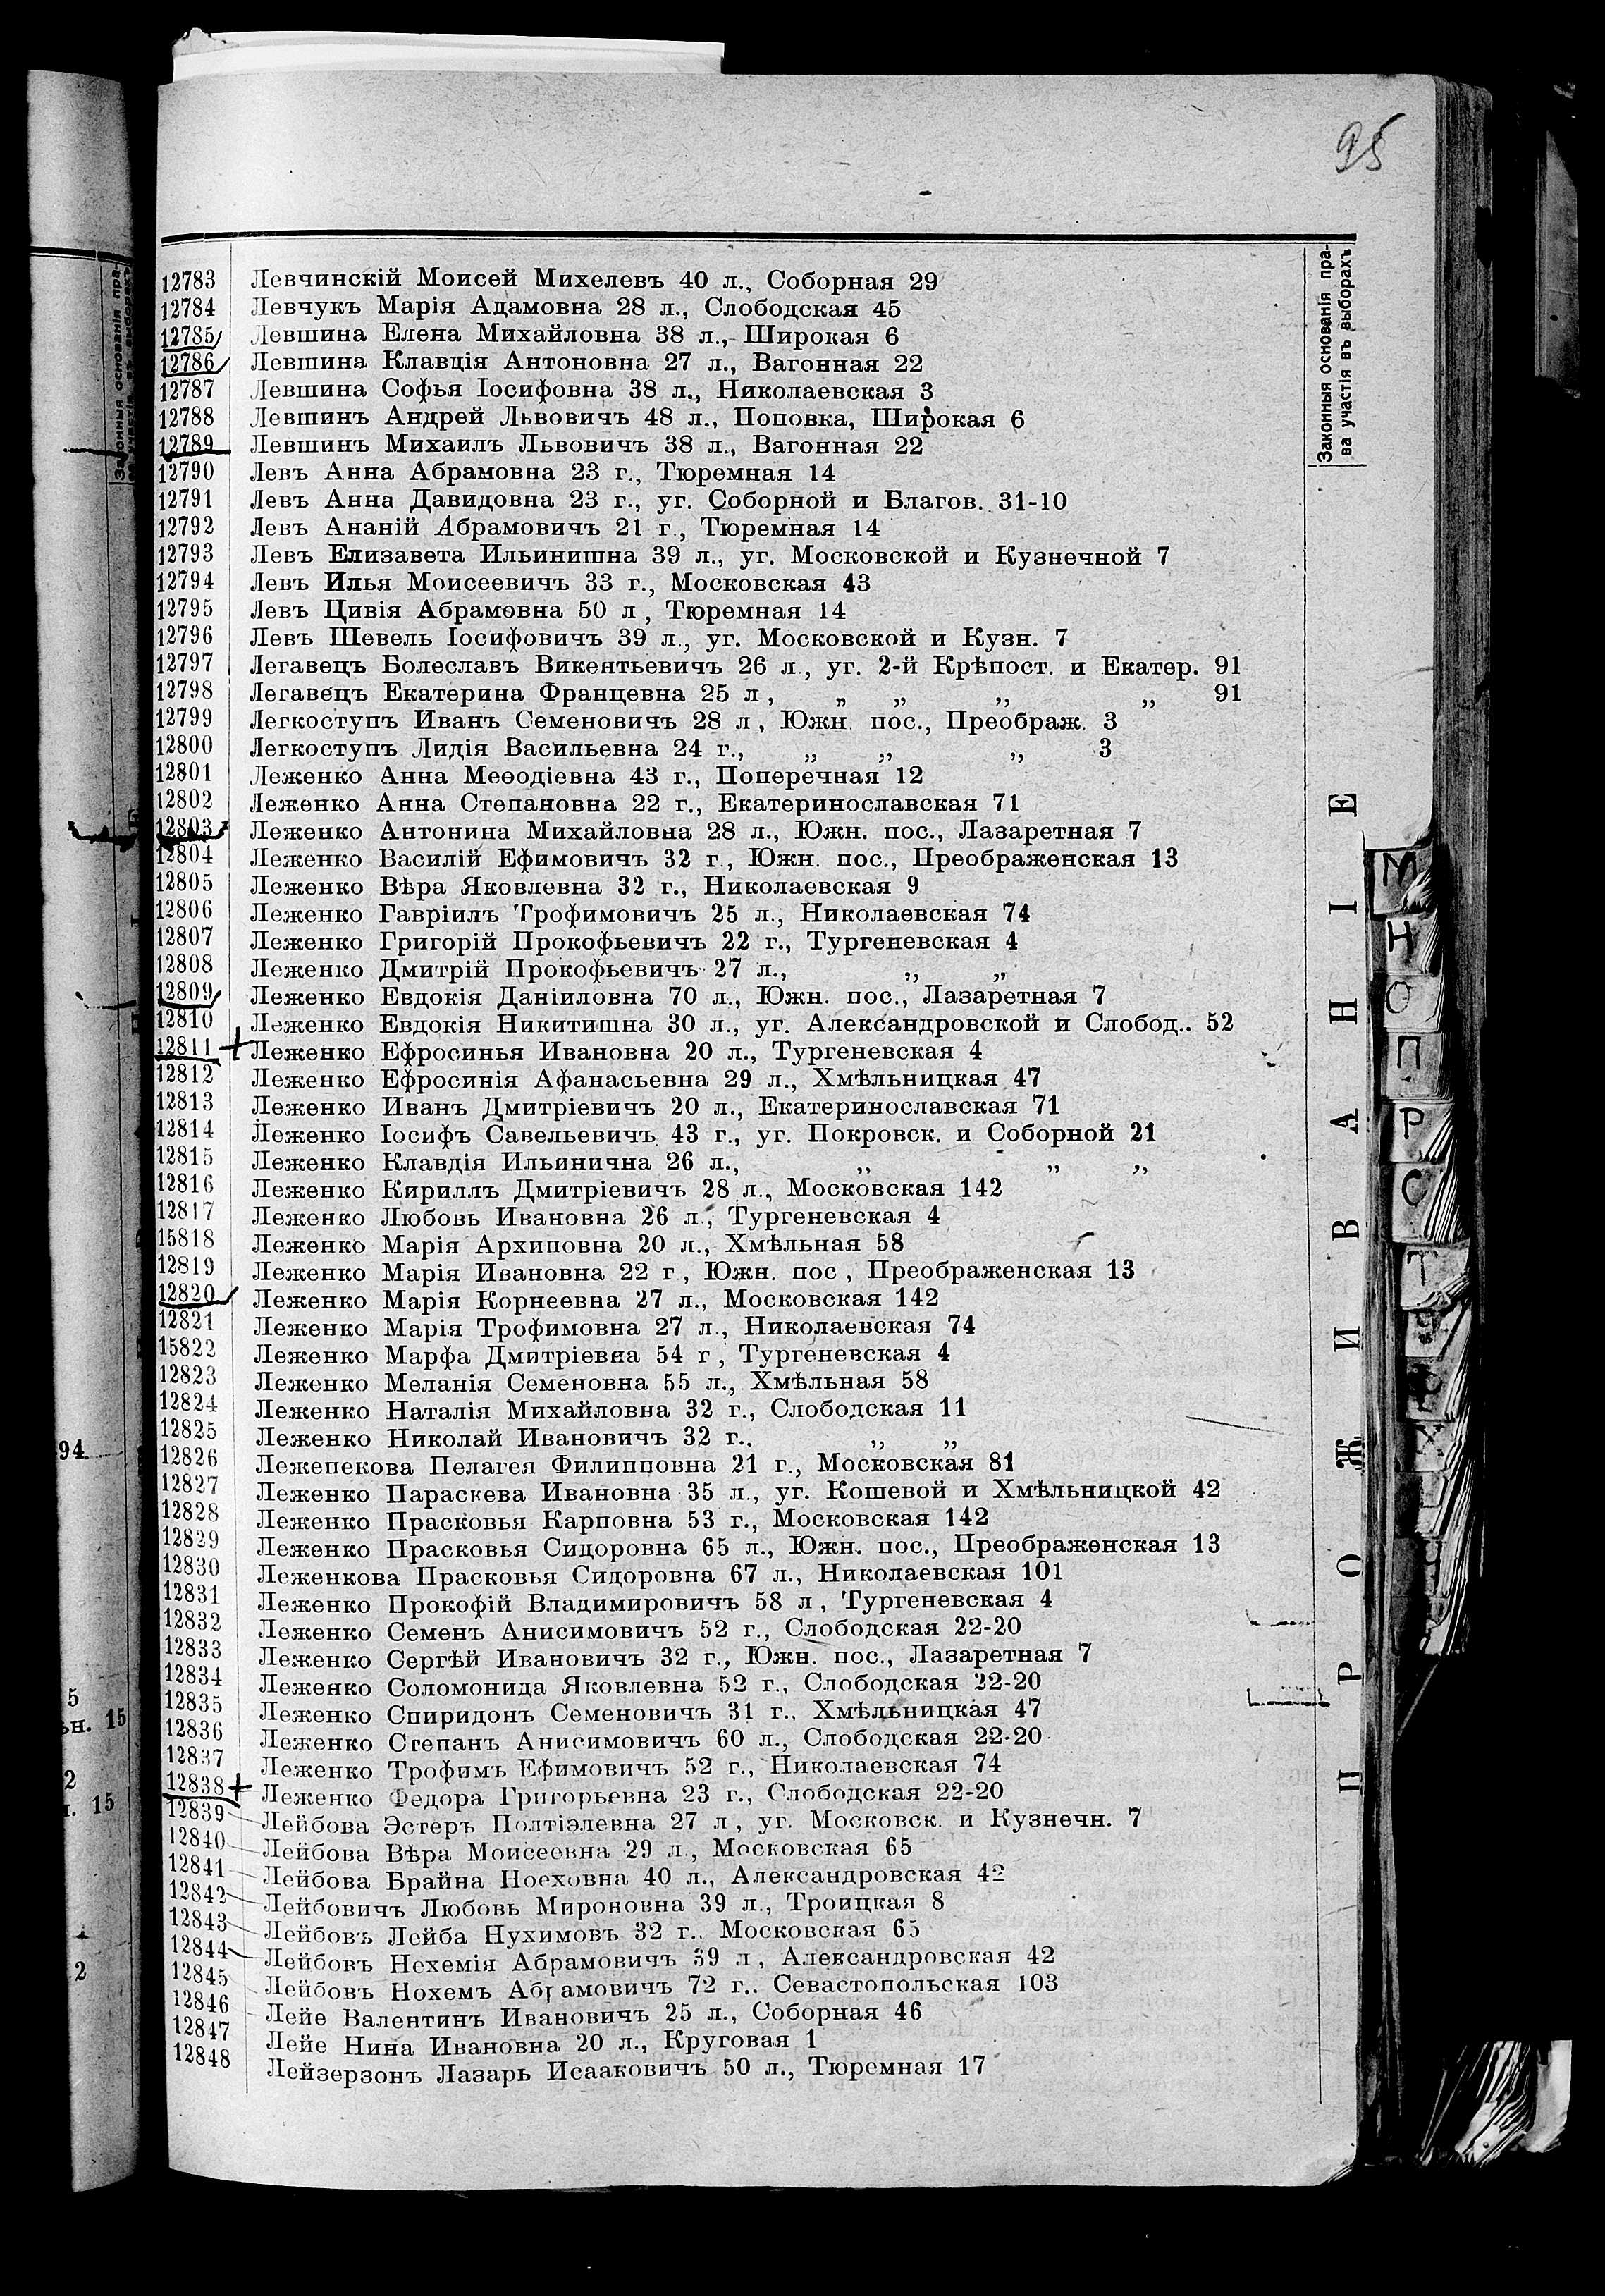 95
Законныя основанія пра-
ва участія въ выборахъ
12783 Левчинскій Моисей Михелевъ 40 л., Соборная 29
12784 Левчукъ Марія Адамовна 28 л., Слободская 45
12785 Левшина Елена Михайловна 38 л., Широкая 6
12786 Левшина Клавдія Антоновна 27 л., Вагонная 22
12787 Левшина Софья Іосифовна 38 л., Николаевская 3
12788 Левшинъ Андрей Львовичъ 48 л., Поповка, Широкая 6
12789 Левшинъ Михаилъ Львовичъ 38 л., Вагонная 22
12790 Левъ Анна Абрамовна 23 г., Тюремная 14
12791 Левъ Анна Давидовна 23 г., уг. Соборной и Благов. 31-10
12792 Левъ Ананій Абрамовичъ 21 г., Тюремная 14
12793 Левъ Елизавета Ильинишна 39 л., уг. Московской и Кузнечной 7
12794 Левъ Илья Моисеевичъ 33 г., Московская 43
12795 Левъ Цивія Абрамовна 50 л , Тюремная 14
12796 Левъ Шевель Іосифовичъ 39 л., уг. Московской и Кузн. 7
12797 Легавецъ Болеславъ Викентьевичъ 26 л., уг. 2-й Крѣпост. и Екатер. 91
12798 Легавецъ Екатерина Францевна 25 л , „ „ „ „ 91
12799 Легкоступъ Иванъ Семеновичъ 28 л , Южн. пос., Преображ. 3
12800 Легкоступъ Лидія Васильевна 24 г., „ „ „ 3
12801 Леженко Анна Меѳодіевна 43 г., Поперечная 12
12802 Леженко Анна Степановна 22 г., Екатеринославская 71
12803 Леженко Антонина Михайловна 28 л., Южн. пос., Лазаретная 7
12804 Леженко Василій Ефимовичъ 32 г., Южн. пос., Преображенская 13
12805 Леженко Вѣра Яковлевна 32 г., Николаевская 9
12806 Леженко Гавріилъ Трофимовичъ 25 л., Николаевская 74
12807 Леженко Григорій Прокофьевичъ 22 г., Тургеневская 4
12808 Леженко Дмитрій Прокофьевичъ 27 л., „ „
12809 Леженко Евдокія Даніиловна 70 л., Южн. пос., Лазаретная 7
12810 Леженко Евдокія Никитишна 30 л., уг. Александровской и Слобод.. 52
12811 + Леженко Ефросинья Ивановна 20 л., Тургеневская 4
12812 Леженко Ефросинія Афанасьевна 29 л., Хмѣльницкая 47
12813 Леженко Иванъ Дмитріевичъ 20 л., Екатеринославская 71
12814 Леженко Іосифъ Савельевичъ 43 г., уг. Покровск. и Соборной 21
12815 Леженко Клавдія Ильинична 26 л., „ „ „
12816 Леженко Кириллъ Дмитріевичъ 28 л., Московская 142
12817 Леженко Любовь Ивановна 26 л., Тургеневская 4
15818 Леженко Марія Архиповна 20 л., Хмѣльная 58
12819 Леженко Марія Ивановна 22 г , Южн. пос , Преображенская 13
12820 Леженко Марія Корнеевна 27 л., Московская 142
12821 Леженко Марія Трофимовна 27 л., Николаевская 74
15822 Леженко Марфа Дмитріевна 54 г , Тургеневская 4
12823 Леженко Меланія Семеновна 55 л., Хмѣльная 58
12824 Леженко Наталія Михайловна 32 г., Слободская 11
12825 Леженко Николай Ивановичъ 32 г.. „ „
12826 Лежепекова Пелагея Филипповна 21 г., Московская 81
12827 Леженко Параскева Ивановна 35 л., уг. Кошевой и Хмѣльницкой 42
12828 Леженко Прасковья Карповна 53 г., Московская 142
12829 Леженко Прасковья Сидоровна 65 л., Южн. пос., Преображенская 13
12830 Леженкова Прасковья Сидоровна 67 л., Николаевская 101
12831 Леженко Прокофій Владимировичъ 58 л , Тургеневская 4
12832 Леженко Семенъ Анисимовичъ 52 г., Слободская 22-20
12833 Леженко Сергѣй Ивановичъ 32 г., Южн. пос., Лазаретная 7
12834 Леженко Соломонида Яковлевна 52 г., Слободская 22-20
12835 Леженко Спиридонъ Семеновичъ 31 г., Хмѣльницкая 47
12836 Леженко Степанъ Анисимовичъ 60 л., Слободская 22-20
12837 Леженко Трофимъ Ефимовичъ 52 г., Николаевская 74
12838 + Леженко Федора Григорьевна 23 г., Слободская 22-20
12839 Лейбова Эстеръ Полтіэлевна 27 л , уг. Московск. и Кузнечн. 7
12840 Лейбова Вѣра Моисеевна 29 л., Московская 65
12841 Лейбова Брайна Ноеховна 40 л., Александровская 42
12842 Лейбовичъ Любовь Мироновна 39 л., Троицкая 8
12843 Лейбовъ Лейба Нухимовъ 32 г.. Московская 65
12844 Лейбовъ Нехемія Абрамовичъ 39 л , Александровская 42
12845 Лейбовъ Нохемъ Абрамовичъ 72 г.. Севастопольская 103
12846 Лейе Валентинъ Ивановичъ 25 л., Соборная 46
12847 Лейе Нина Ивановна 20 л., Круговая 1
12848 Лейзерзонъ Лазарь Исааковичъ 50 л., Тюремная 17
ПРОЖИВАНІЕ
М
Н
О
П
Р
С
Т
У
Х
94
5
ьн. 15
2
15
2